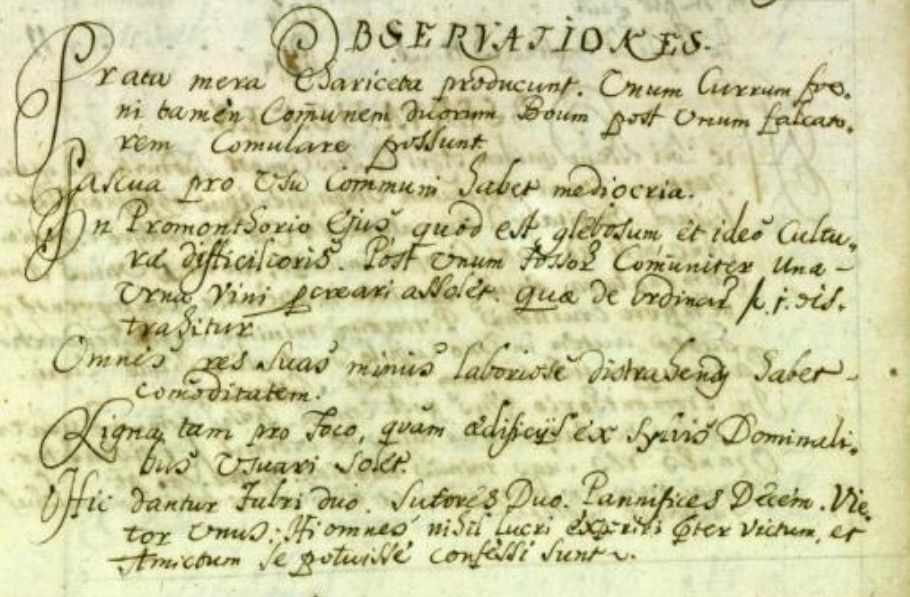 OBSERVATIONES.
Prata mera Chariceta producunt. Unum Currum foe-
ni tamen Com̄unem duorum Boum post Unum falcato-
rem Comulare possunt
Pascua pro Usu Communi habet mediocria.
In Promonthorio Ejus quod est glebosum et ideo Cultu-
ræ difficilioris. Post Unum Fossor Com̄uniter Una
Urna Vini pcreari assolet. quæ de ordinar f. 1. dis-
trahitur
Omnes res suas minus laboriose distrahendj habet
com̄oditatem.
Ligna tam pro Foco, quam ædificijs ex Sylvis Dominali-
bus Usuari solet.
Hic dantur Fabri duo. Sutores Duo. Pannifices Decem. Vie-
tor Unus. Hi omnes nihil lucri præter victum, et
Amictum se potuisse confessi sunt.